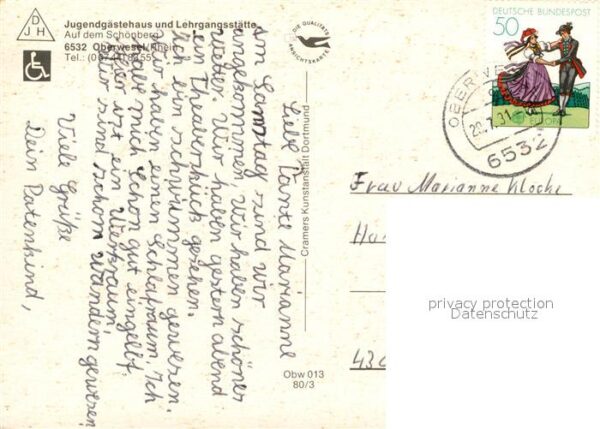 DJH
Jugendgästehaus und Lehrgangsstätte
Auf dem Schönberg
6532 Oberwesel/Rhein
Liebe Tante Marianne
Am Samstag sind wir
angekommen, wir haben schönes
Wetter. Wir haben gestern abend
ein Theaterstück gesehen.
Ich bin schwimmen gewesen.
Wir haben einen Schlafraum, Ich
habe mich schon gut eingelebt,
hier ist ein
Wir sind schon Wandern gewesen
Viele Grüße
Dein Patenkind,
DIE QUALITÄTS
ANSICHTSKARTE
Cramers Kunstanstalt Dortmund
Obw 013
80/3
DEUTSCHE BUNDESPOST
50
EUROPA
6532
Frau Marianne Klocke
privacy protection
Datenschutz